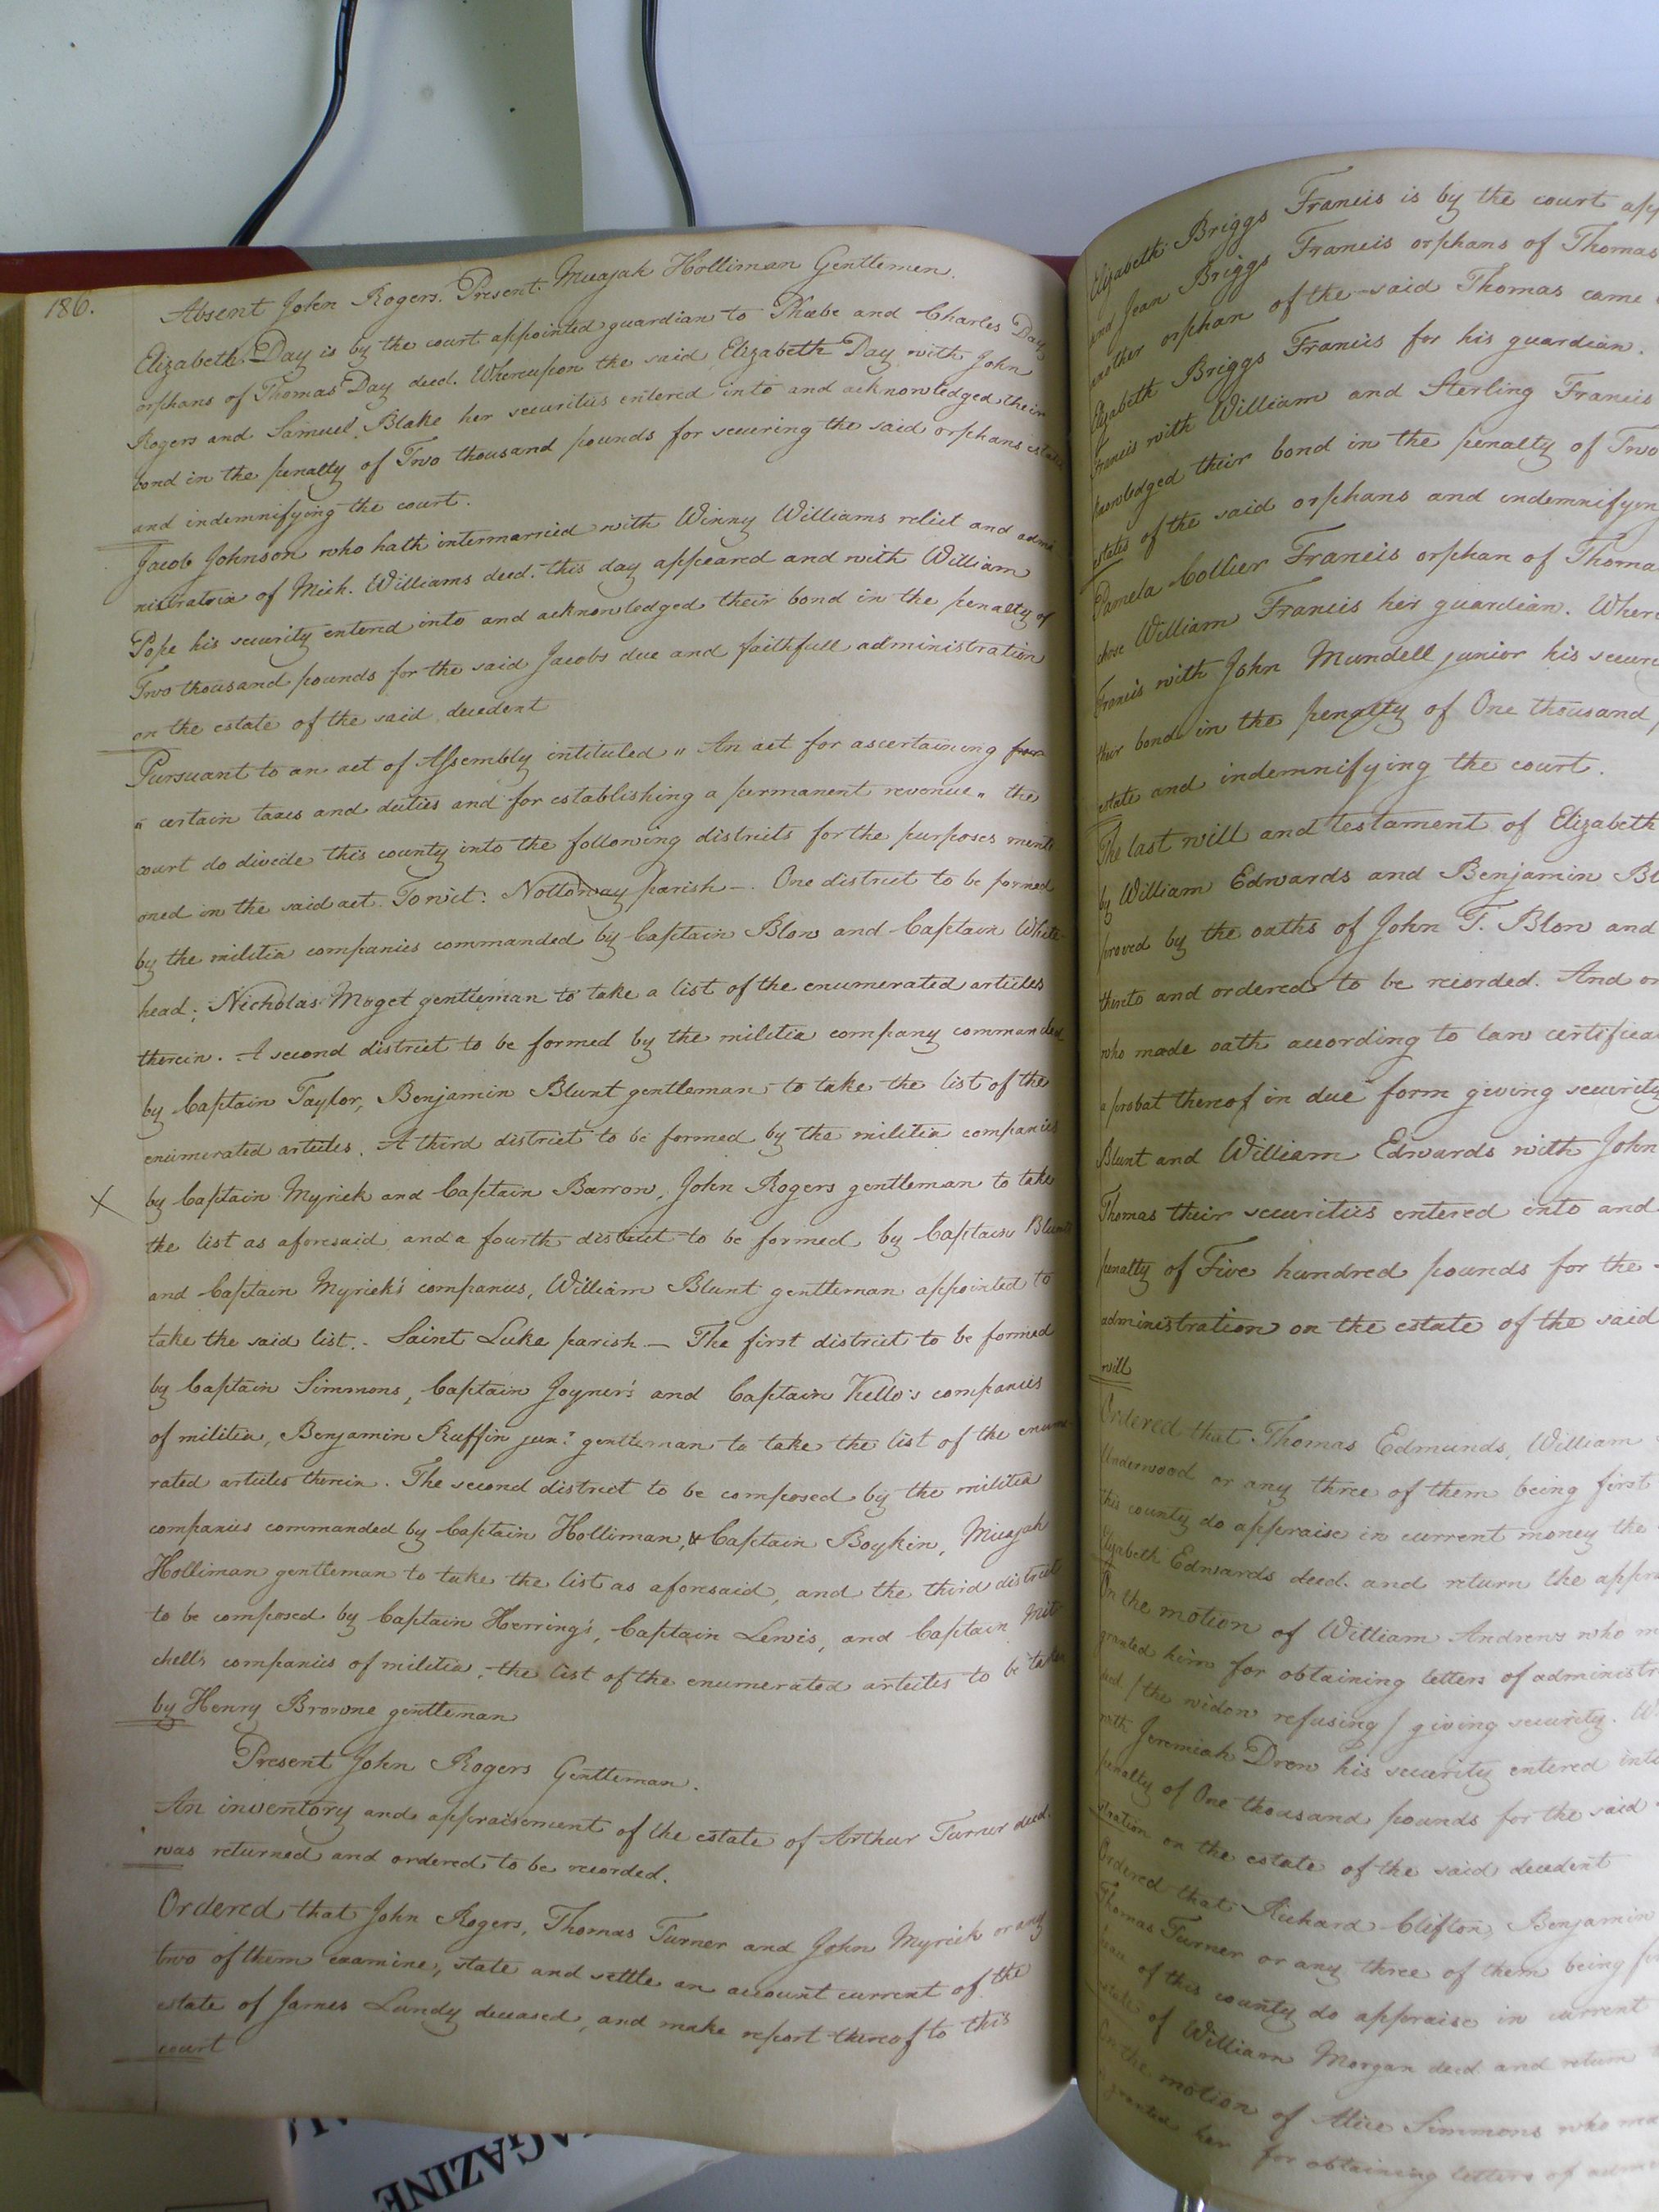 186.
Absent John Rogers. Present. Micajah Holliman Gentlemen.
Elizabeth Day is by the court appointed guardian to Phœbe and Charles Day
orphans of Thomas Day deced. Whereupon the said Elizabeth Day with John
Rogers and Samuel Blake her securities entered into and acknowledged their
bond in the penalty of Two thousand pounds for securing the said orphans estate
and indemnifying the court.
Jacob Johnson who hath intermarried with Winny Williams relict and admi
nistratrix of Mich. Williams deced. this day appeared and with William
Pope his security entered into and acknowledged their bond in the penalty of
Two thousand pounds for the said Jacobs due and faithfull administration
on the estate of the said decedent
Pursuant to an act of Assembly intituled " An act for ascertaining
" certain taxes and duties and for establishing a permanent revenue " the
court do divide this county into the following districts for the purposes menti
oned in the said act. Towit: Nottoway parish —. One district to be formed
by the militia companies commanded by Captain Blow and Captain White
head; Nicholas Maget gentleman to take a list of the enumerated articles
therein. A second district to be formed by the militia company commanded
by Captain Taylor, Benjamin Blunt gentleman to take the list of the
enumerated articles. A third district to be formed by the militia companies
X by Captain Myrick and Captain Barrow, John Rogers gentleman to take
the list as aforesaid and a fourth district to be formed by Captain Blunts
and Captain Myrick's companies, William Blunt gentleman appointed to
take the said list. - Saint Luke parish — The first district to be formed
by Captain Simmons, Captain Joyner's and Captain Kello's companies
of militia, Benjamin Ruffin junr. gentleman to take the list of the enume
rated articles therein. The second district to be composed by the militia
companies commanded by Captain Holliman, & Captain Boykin, Micajah
Holliman gentleman to take the list as aforesaid, and the third district
to be composed by Captain Herring's, Captain Lewis, and Captain Mit
chells companies of militia, the list of the enumerated articles to be taken
by Henry Browne gentleman
Present John Rogers Gentleman.
An inventory and appraisement of the estate of Arthur Turner deced.
was returned and ordered to be recorded.
Ordered that John Rogers, Thomas Turner and John Myrick or any
two of them examine, state and settle an account current of the
estate of James Lundy deceased, and make report thereof to this
court
Elizabeth Briggs Francis is by the court app
and Jean Briggs Francis orphans of Thomas
another orphan of the said Thomas came
Elizabeth Briggs Francis for his guardian.
Francis with William and Sterling Francis
knowledged their bond in the penalty of Two
estates of the said orphans and indemnifying
Pamela Collier Francis orphan of Thoma
chose William Francis her guardian. Where
Francis with John Mundell junior his secur
their bond in the penalty of One thousand
estate and indemnifying the court.
The last will and testament of Elizabeth
by William Edwards and Benjamin Bl
proved by the oaths of John T. Blow and
thereto and ordered to be recorded. And on
who made oath according to law certifica
a probat thereof in due form giving security
Blunt and William Edwards with John
Thomas their securities entered into and
penalty of Five hundred pounds for the
administration on the estate of the said
will
Ordered that Thomas Edmunds, William
Underwood or any three of them being first
this county do appraise in current money the
Elizabeth Edwards deced. and return the appra
On the motion of William Andrews who m
granted him for obtaining letters of administr
deced / the widow refusing / giving security. W
with Jeremiah Drew his security entered into
penalty of One thousand pounds for the said
stration on the estate of the said decedent
Ordered that Richard Clifton, Benjamin
Thomas Turner or any three of them being fir
of this county do appraise in current
estate of William Morgan deced. and return
On the motion of Alice Simmons who ma
granted her for obtaining letters of admi
AGAZINE